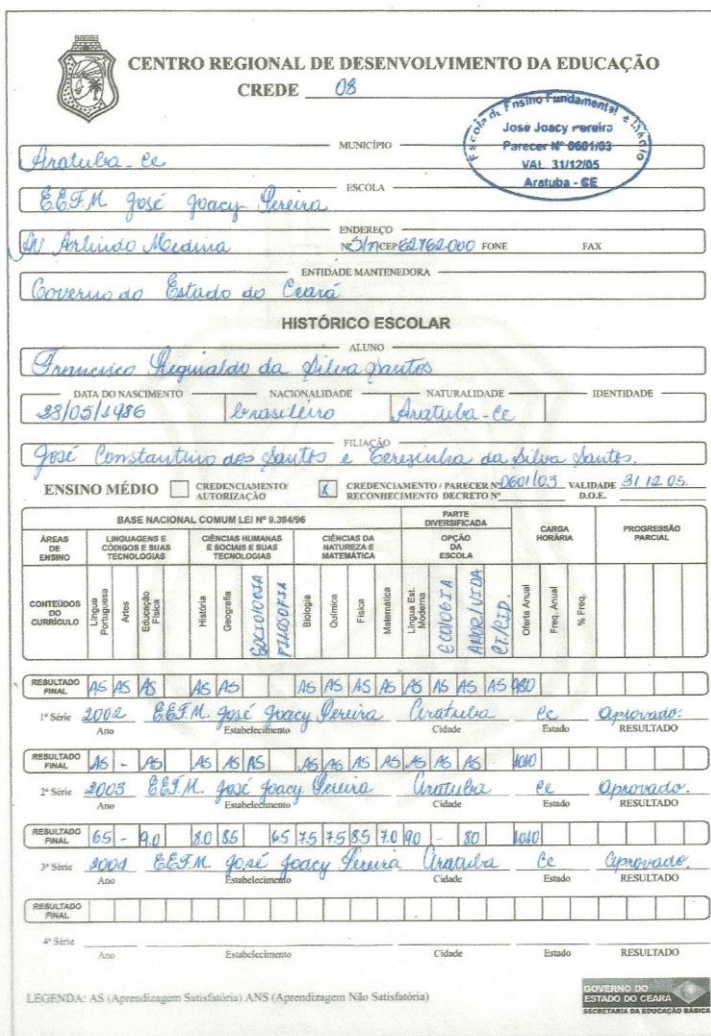 CENTRO REGIONAL DE DESENVOLVIMENTO DA EDUCAÇÃO
CREDE 08
Escola de Ensino Fundamental e Médio
José Joacy Pereira
Parecer Nº 0601/03
VAL. 31/12/05
Aratuba - CE
MUNICÍPIO
Aratuba - Ce
ESCOLA
E.E.F.M José Joacy Pereira
ENDEREÇO
AV Arlindo Medina Nº S/n CEP 62762-000 FONE FAX
ENTIDADE MANTENEDORA
Governo do Estado do Ceará
HISTÓRICO ESCOLAR
ALUNO
Francisco Reginaldo da Silva Santos
DATA DO NASCIMENTO NACIONALIDADE NATURALIDADE IDENTIDADE
23/05/1986 brasileiro Aratuba - Ce
FILIAÇÃO
José Constantino dos Santos e Terezinha da Silva Santos.
ENSINO MÉDIO CREDENCIAMENTO/ AUTORIZAÇÃO X CREDENCIAMENTO / PARECER Nº 0601/03 VALIDADE 31.12.05.
RECONHECIMENTO DECRETO Nº D.O.E.
BASE NACIONAL COMUM LEI Nº 9.394/96 PARTE DIVERSIFICADA CARGA HORÁRIA PROGRESSÃO PARCIAL
ÁREAS DE ENSINO LINGUAGENS E CÓDIGOS E SUAS TECNOLOGIAS CIÊNCIAS HUMANAS E SOCIAIS E SUAS TECNOLOGIAS CIÊNCIAS DA NATUREZA E MATEMÁTICA OPÇÃO DA ESCOLA
CONTEÚDOS DO CURRÍCULO Língua Portuguesa Artes Educação Física História Geografia SOCIOLOGIA FILOSOFIA Biologia Química Física Matemática Língua Est. Moderna ECOLOGIA AMOR/VIDA CT./CID. Oferta Anual Freq. Anual % Freq.
RESULTADO FINAL AS AS AS AS AS AS AS AS AS AS AS AS AS 980
1ª Série 2002 E.E.F.M. José Joacy Pereira Aratuba Ce Aprovado.
Ano Estabelecimento Cidade Estado RESULTADO
RESULTADO FINAL AS - AS AS AS AS AS AS AS AS AS AS AS 1040
2ª Série 2003 E.E.F.M. José Joacy Pereira Aratuba Ce Aprovado.
Ano Estabelecimento Cidade Estado RESULTADO
RESULTADO FINAL 65 - 9.0 8.0 85 65 75 7.5 85 7.0 90 - 80 1040
3ª Série 2004 E.E.F.M José Joacy Pereira Aratuba Ce Aprovado.
Ano Estabelecimento Cidade Estado RESULTADO
RESULTADO FINAL
4ª Série
Ano Estabelecimento Cidade Estado RESULTADO
LEGENDA: AS (Aprendizagem Satisfatória) ANS (Aprendizagem Não Satisfatória)
GOVERNO DO
ESTADO DO CEARÁ
SECRETARIA DA EDUCAÇÃO BÁSICA